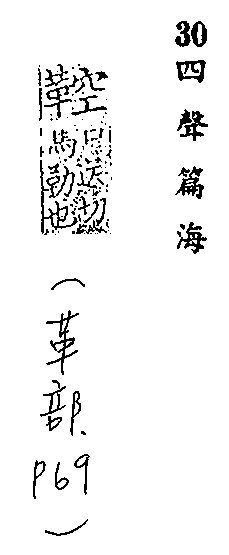 30四聲篇海
鞚
口送切
馬勒也
(革部、P69)